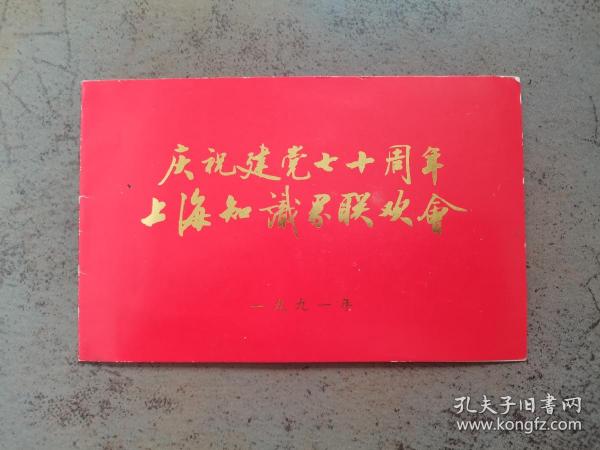 庆祝建党七十周年
上海知識界联欢會
一九九一年
孔夫子旧书网
www.kongfz.com